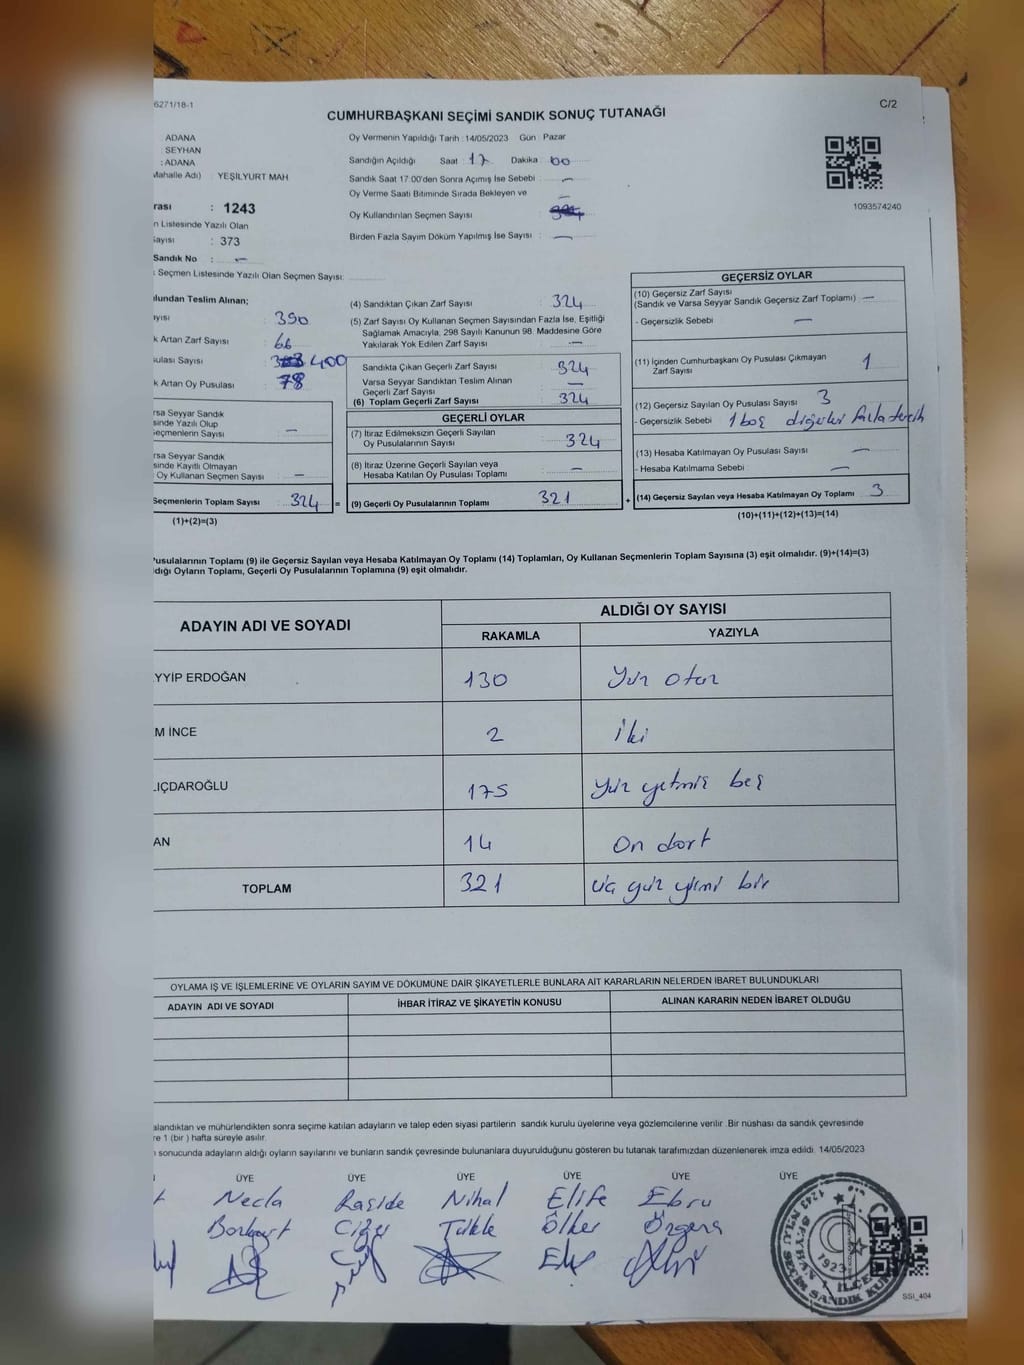 6271/18-1
C/2
CUMHURBAŞKANI SEÇİMİ SANDIK SONUÇ TUTANAĞI
ADANA
SEYHAN
: ADANA
Mahalle Adı) : YEŞİLYURT MAH
Oy Vermenin Yapıldığı Tarih : 14/05/2023 Gün : Pazar
Sandığın Açıldığı Saat : 17 Dakika : 00
Sandık Saat 17:00'den Sonra Açımış İse Sebebi : —
Oy Verme Saati Bitiminde Sırada Bekleyen ve —
Oy Kullandırılan Seçmen Sayısı :
Birden Fazla Sayım Döküm Yapılmış İse Sayısı : —
1093574240
rası : 1243
n Listesinde Yazılı Olan
sayısı : 373
Sandık No : —
Seçmen Listesinde Yazılı Olan Seçmen Sayısı:
ulundan Teslim Alınan;
yısı : 390
k Artan Zarf Sayısı : 66
sulası Sayısı : 400
k Artan Oy Pusulası : 78
rsa Seyyar Sandık
sinde Yazılı Olup
eçmenlerin Sayısı : —
rsa Seyyar Sandık
sinde Kayıtlı Olmayan
Oy Kullanan Seçmen Sayısı : —
Seçmenlerin Toplam Sayısı : 324 =
(1)+(2)=(3)
(4) Sandıktan Çıkan Zarf Sayısı : 324
(5) Zarf Sayısı Oy Kullanan Seçmen Sayısından Fazla İse, Eşitliği
Sağlamak Amacıyla, 298 Sayılı Kanunun 98. Maddesine Göre
Yakılarak Yok Edilen Zarf Sayısı : —
Sandıkta Çıkan Geçerli Zarf Sayısı : 324
Varsa Seyyar Sandıktan Teslim Alınan
Geçerli Zarf Sayısı : —
(6) Toplam Geçerli Zarf Sayısı : 324
GEÇERLİ OYLAR
(7) İtiraz Edilmeksizin Geçerli Sayılan
Oy Pusulalarının Sayısı : 324
(8) İtiraz Üzerine Geçerli Sayılan veya
Hesaba Katılan Oy Pusulası Toplamı : —
(9) Geçerli Oy Pusulalarının Toplamı : 321 +
GEÇERSİZ OYLAR
(10) Geçersiz Zarf Sayısı
(Sandık ve Varsa Seyyar Sandık Geçersiz Zarf Toplamı) : —
- Geçersizlik Sebebi : —
(11) İçinden Cumhurbaşkanı Oy Pusulası Çıkmayan
Zarf Sayısı : 1
(12) Geçersiz Sayılan Oy Pusulası Sayısı : 3
- Geçersizlik Sebebi : 1 boş diğerleri fazla tercih
(13) Hesaba Katılmayan Oy Pusulası Sayısı : —
- Hesaba Katılmama Sebebi : —
(14) Geçersiz Sayılan veya Hesaba Katılmayan Oy Toplamı : 3
(10)+(11)+(12)+(13)=(14)
Pusulalarının Toplamı (9) ile Geçersiz Sayılan veya Hesaba Katılmayan Oy Toplamı (14) Toplamları, Oy Kullanan Seçmenlerin Toplam Sayısına (3) eşit olmalıdır. (9)+(14)=(3)
dığı Oyların Toplamı, Geçerli Oy Pusulalarının Toplamına (9) eşit olmalıdır.
ADAYIN ADI VE SOYADI
ALDIĞI OY SAYISI
RAKAMLA YAZIYLA
YYİP ERDOĞAN 130 Yüz otuz
M İNCE 2 İki
LIÇDAROĞLU 175 Yüz yetmiş beş
AN 14 On dört
TOPLAM 321 üç yüz yirmi bir
OYLAMA İŞ VE İŞLEMLERİNE VE OYLARIN SAYIM VE DÖKÜMÜNE DAİR ŞİKAYETLERLE BUNLARA AİT KARARLARIN NELERDEN İBARET BULUNDUKLARI
ADAYIN ADI VE SOYADI İHBAR İTİRAZ VE ŞİKAYETİN KONUSU ALINAN KARARIN NEDEN İBARET OLDUĞU
alandıktan ve mühürlendikten sonra seçime katılan adayların ve talep eden siyasi partilerin sandık kurulu üyelerine veya gözlemcilerine verilir .Bir nüshası da sandık çevresinde
re 1 (bir ) hafta süreyle asılır.
sonucunda adayların aldığı oyların sayılarını ve bunların sandık çevresinde bulunanlara duyurulduğunu gösteren bu tutanak tarafımızdan düzenlenerek imza edildi. 14/05/2023
ÜYE ÜYE ÜYE ÜYE ÜYE ÜYE
Necla Raside Nihal Elife Ebru
Bozkurt Ciğer Ülker
SSİ_404